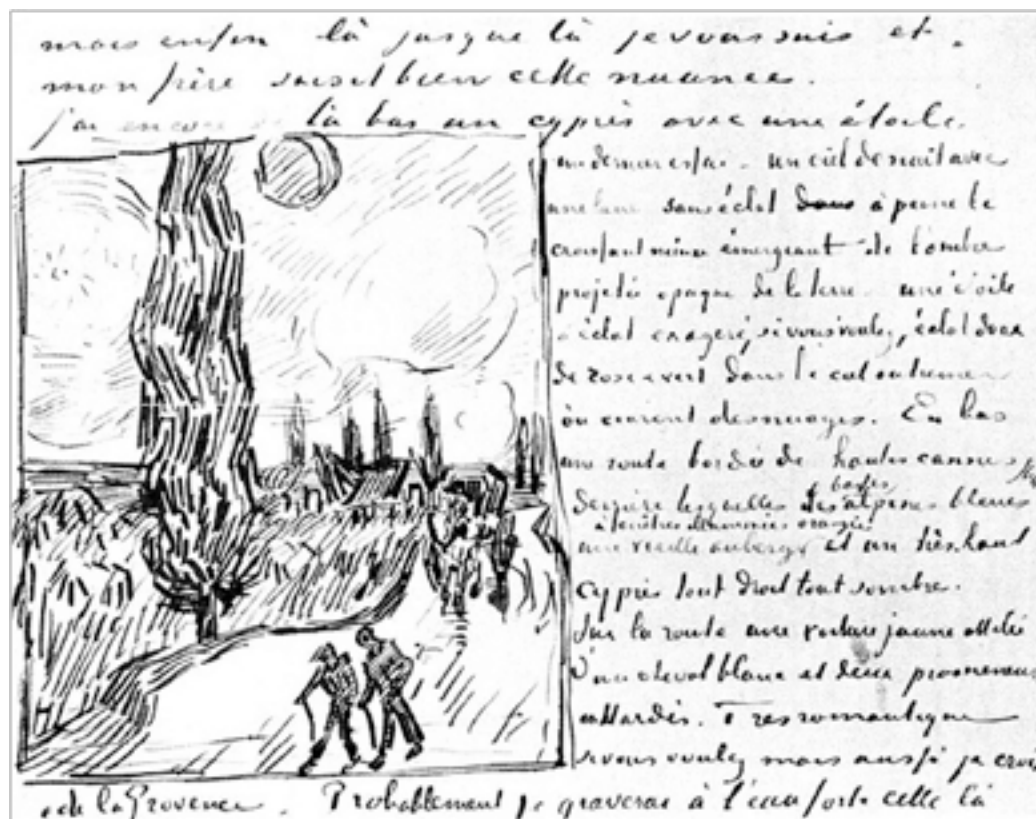 mais enfin là jusque là je vous suis et
mon frère saisit bien cette nuance.
j'ai encore de là bas un cyprès avec une étoile.
un dernier essai – un ciel de nuit avec
une lune sans éclat à peine le
croissant mince émergeant de l'ombre
projetée opaque de la terre – une étoile
à éclat exagéré, si vous voulez, éclat doux
de rose & vert dans le ciel outremer
où courent des nuages. En bas
une route bordée de hautes cannes
derrière lesquelles les basses alpines bleues
à fenêtres illuminées orangé
une vieille auberge et un très haut
cyprès tout droit tout sombre.
Sur la route une voiture jaune attelée
d'un cheval blanc et deux promeneurs
attardés. Très romantique
si vous voulez mais aussi je crois
de la Provence. Probablement je graverai à l'eau forte celle là